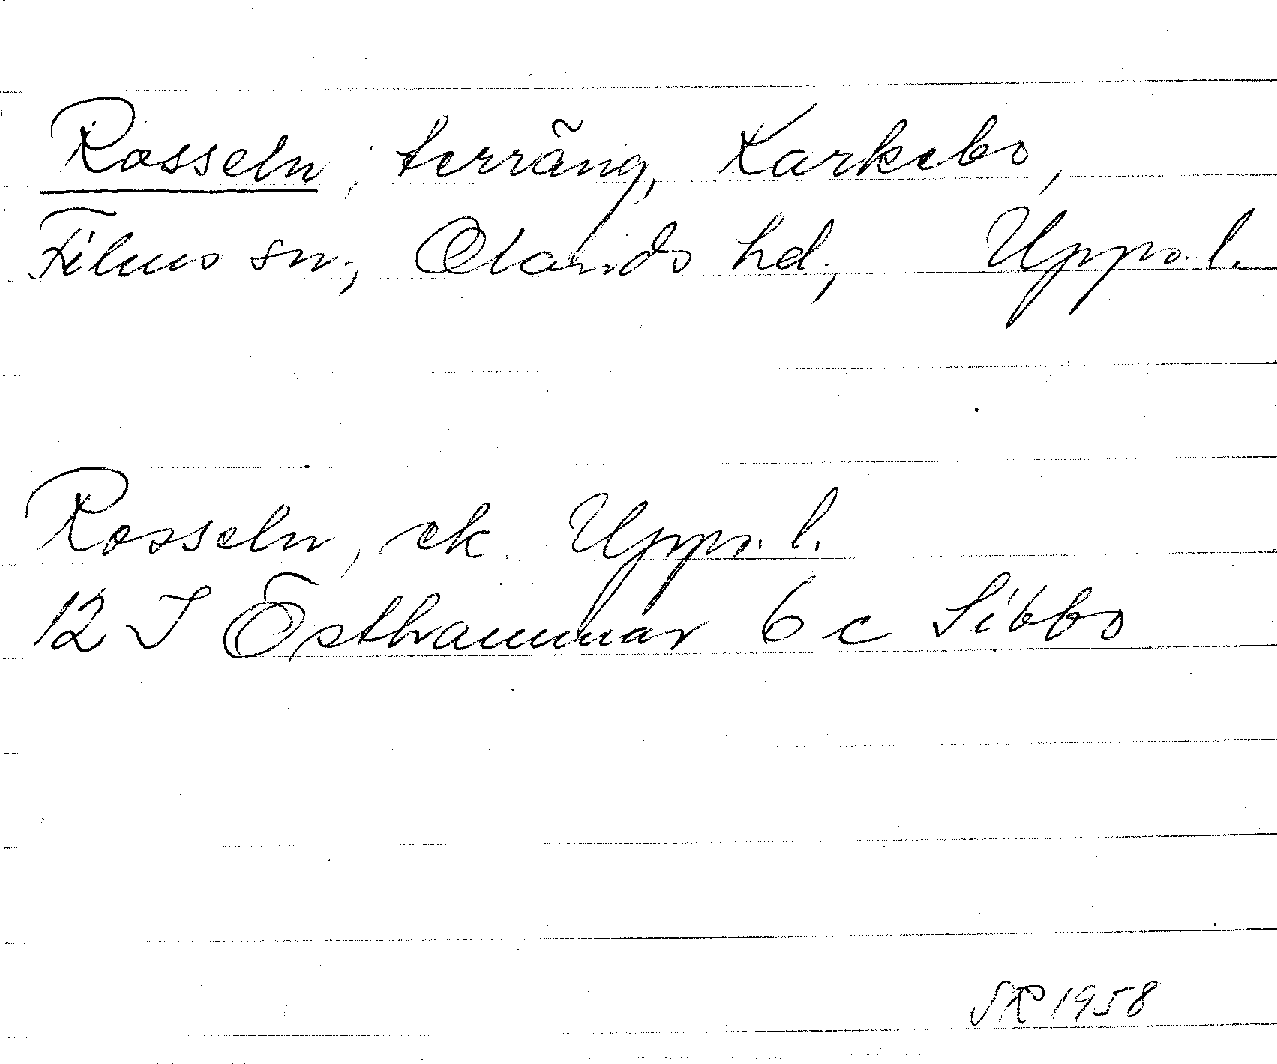 Rosseln, terräng, Karkebo,
Films sn, Olands hd, Upps. l.
Rosseln, ek. Upps. l.
12 I Östhammar 6 c Sibbo
SR 1958